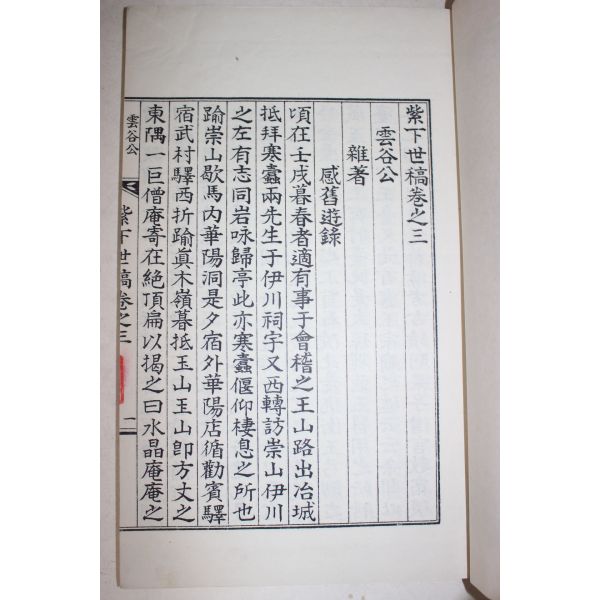 紫下世稿卷之三
雲谷公
雜著
感舊遊錄
頃在壬戌暮春者適有事于會稽之王山路出冶城
抵拜寒蠹兩先生于伊川祠宇又西轉訪崇山伊川
之左有志同岩咏歸亭此亦寒蠹偃仰棲息之所也
踰崇山歇馬內華陽洞是夕宿外華陽店循勸賓驛
宿武村驛西折踰眞木嶺暮抵王山王山卽方丈之
東隅一巨僧庵寄在絶頂扁以揭之曰水晶庵庵之
雲谷公
紫下世稿卷之三
一